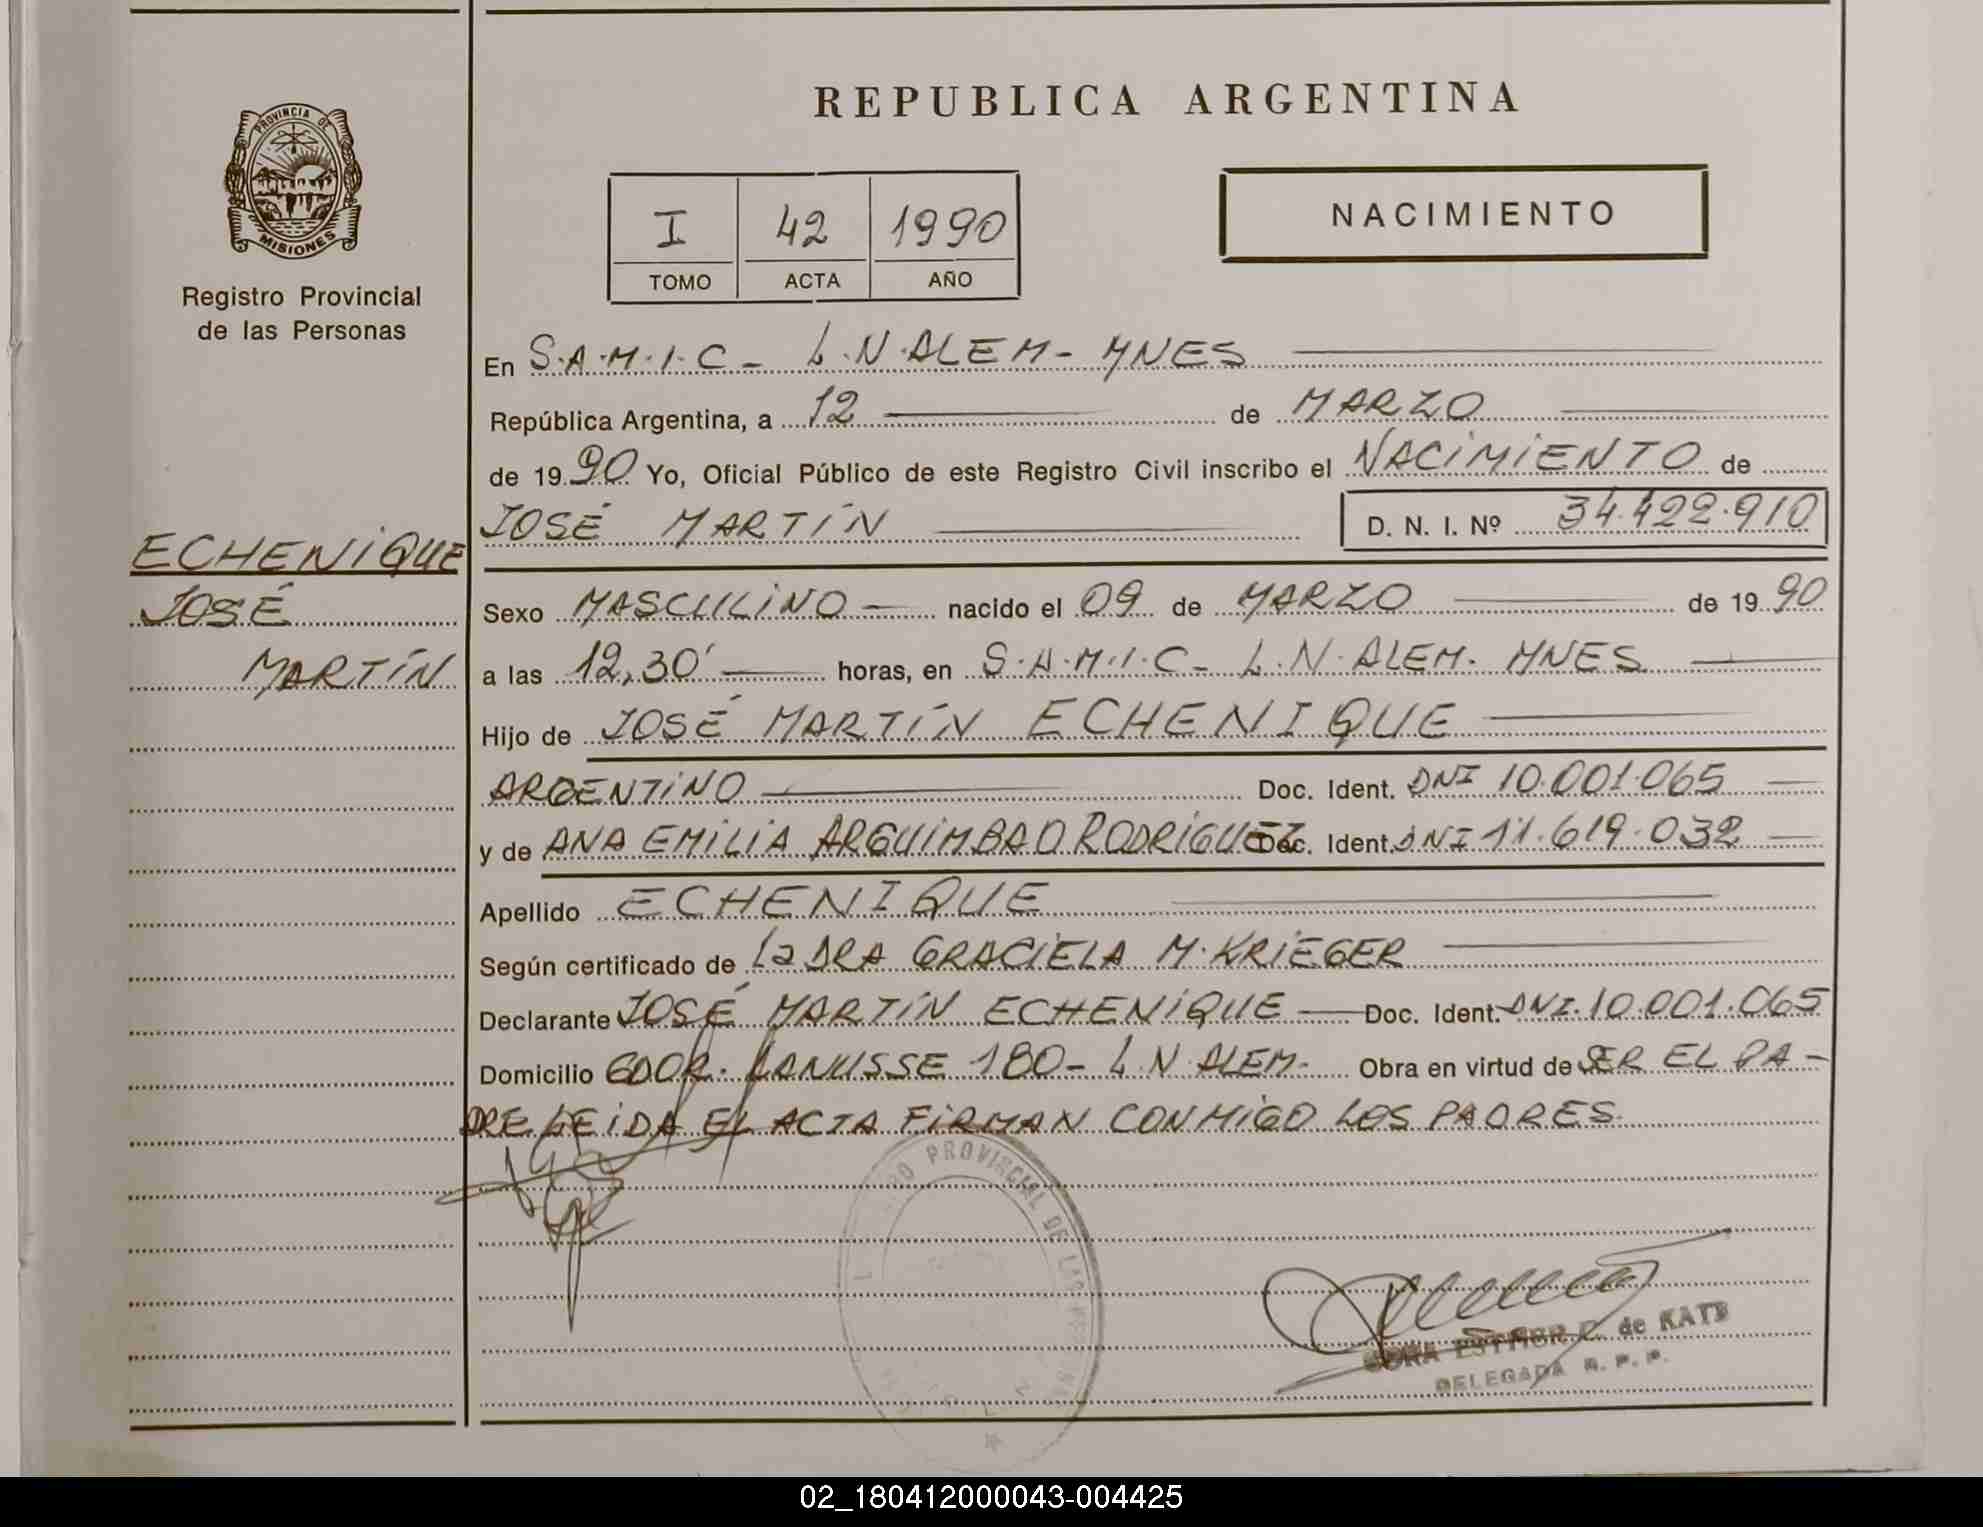 REPUBLICA ARGENTINA
PROVINCIA DE
MISIONES
Registro Provincial
de las Personas
I 42 1990
TOMO ACTA AÑO
NACIMIENTO
En S.A.M.I.C - L.N.ALEM - MNES
República Argentina, a 12 de MARZO
de 1990 Yo, Oficial Público de este Registro Civil inscribo el NACIMIENTO de
JOSÉ MARTÍN D. N. I. Nº 34.422.910
ECHENIQUE
JOSÉ
MARTÍN
Sexo MASCULINO nacido el 09 de MARZO de 1990
a las 12,30' horas, en S.A.M.I.C - L.N.ALEM. MNES
Hijo de JOSÉ MARTÍN ECHENIQUE
ARGENTINO Doc. Ident. DNI 10.001.065
y de ANA EMILIA ARGUIMBAO RODRIGUEZ Doc. Ident. DNI 11.619.032
Apellido ECHENIQUE
Según certificado de La DRA GRACIELA M. KRIEGER
Declarante JOSÉ MARTÍN ECHENIQUE Doc. Ident. DNI. 10.001.065
Domicilio GDOR. LANUSSE 180 - L.N ALEM. Obra en virtud de SER EL PA-
DRE LEIDA EL ACTA FIRMAN CONMIGO LOS PADRES.
PROVINCIAL DE LAS
ESTHER de KATZ
DELEGADA R. P. P.
02_180412000043-004425